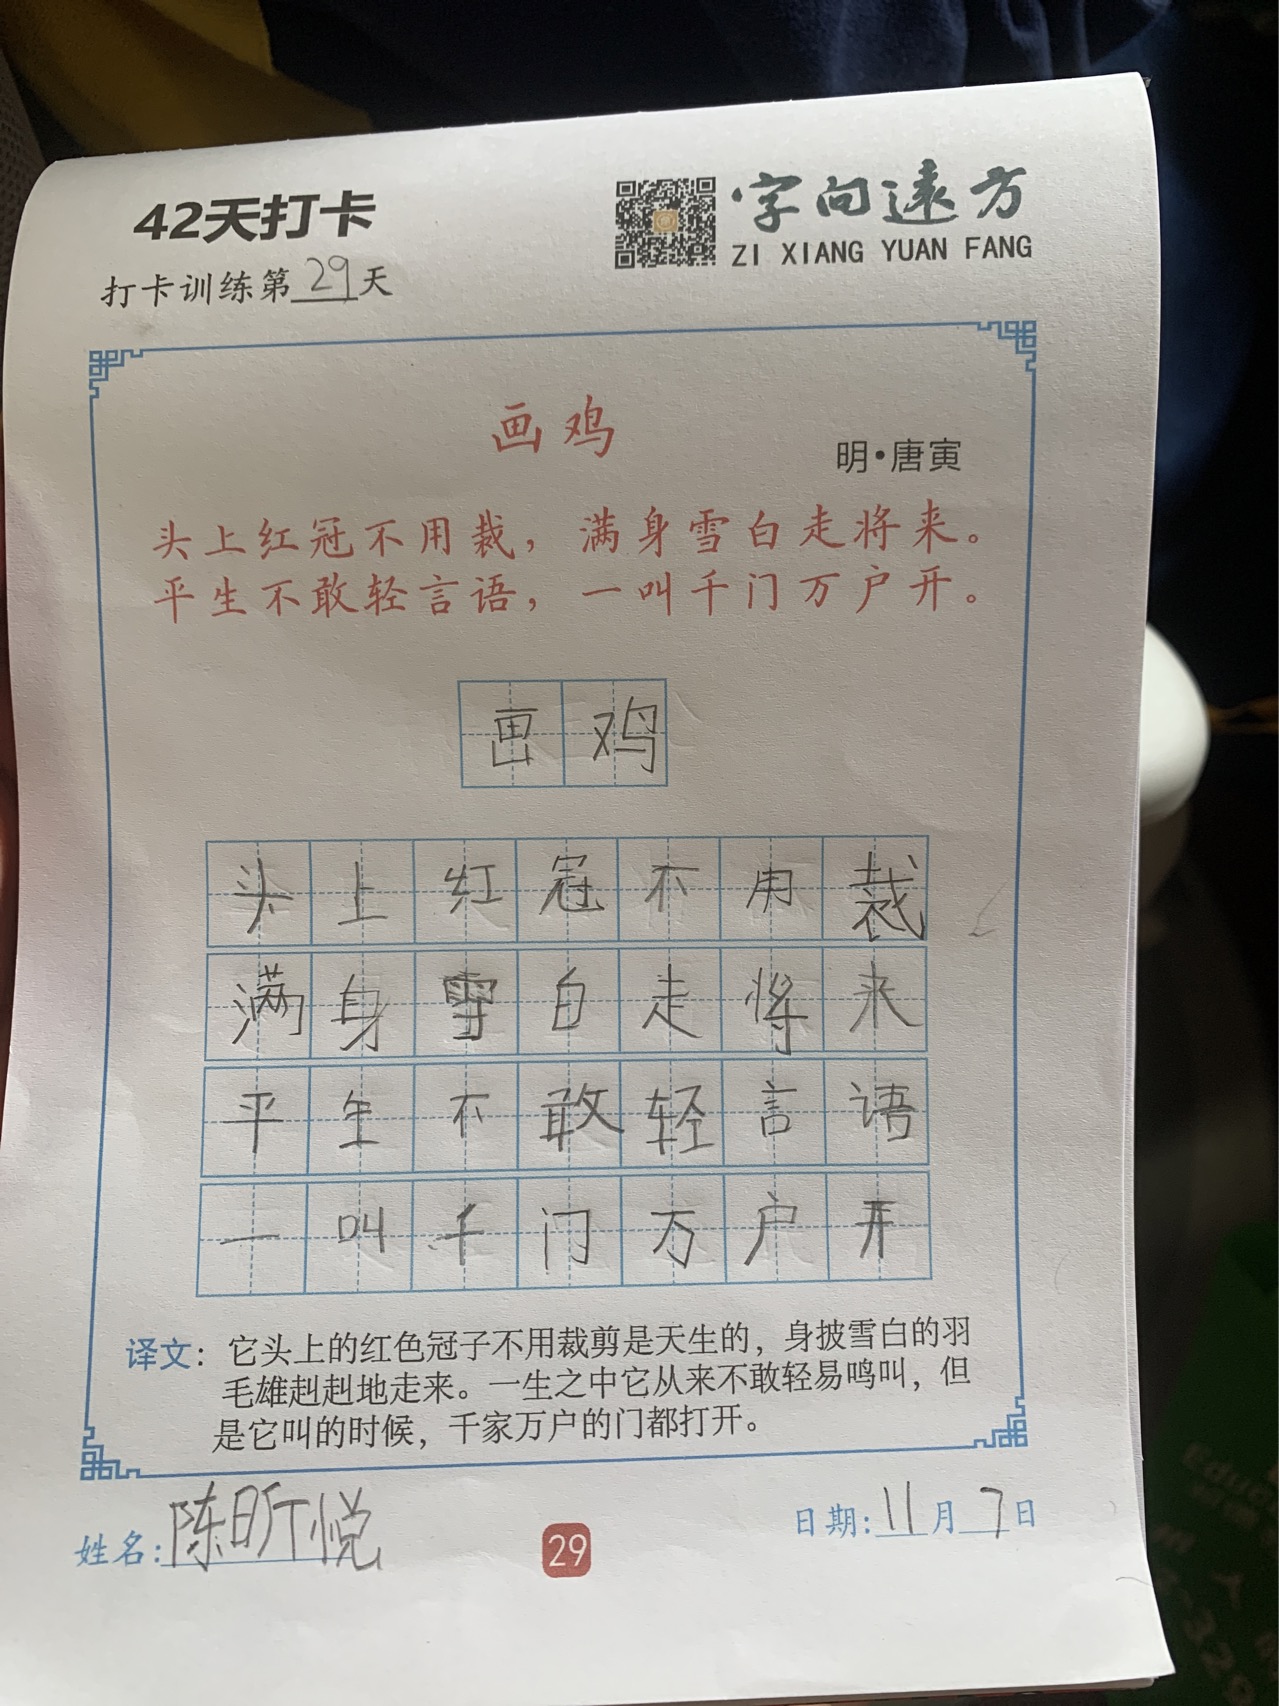 42天打卡
字向远方
ZI XIANG YUAN FANG
打卡训练第29天
画鸡
明·唐寅
头上红冠不用裁，满身雪白走将来。
平生不敢轻言语，一叫千门万户开。
画鸡
头上红冠不用裁
满身雪白走将来
平生不敢轻言语
一叫千门万户开
译文：它头上的红色冠子不用裁剪是天生的，身披雪白的羽
毛雄赳赳地走来。一生之中它从来不敢轻易鸣叫，但
是它叫的时候，千家万户的门都打开。
姓名：陈昕悦
29
日期：11月7日